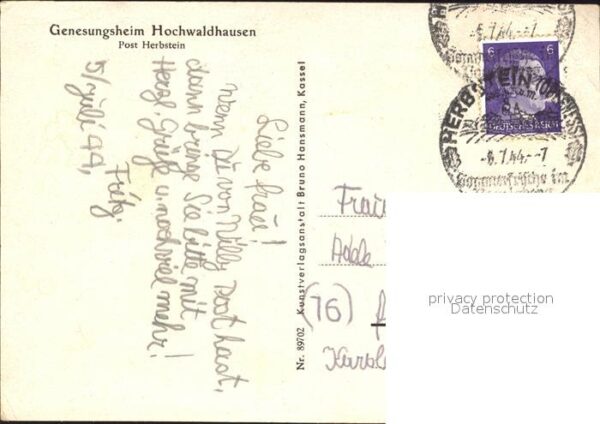 Genesungsheim Hochwaldhausen
Post Herbstein
5/Juli 44.
Liebe Frau!
Wenn Du von Willy Post hast,
dann bringe Sie bitte mit
Herzl. Grüße u. noch viel mehr!
Fritz.
Nr. 89702 Kunstverlagsanstalt Bruno Hansmann, Kassel
Frau
(16)
-6.7.44.-7
6
6
DEUTSCHES REICH
HERBSTEIN
-6.7.44.-7
Sommerfrische im
privacy protection
Datenschutz